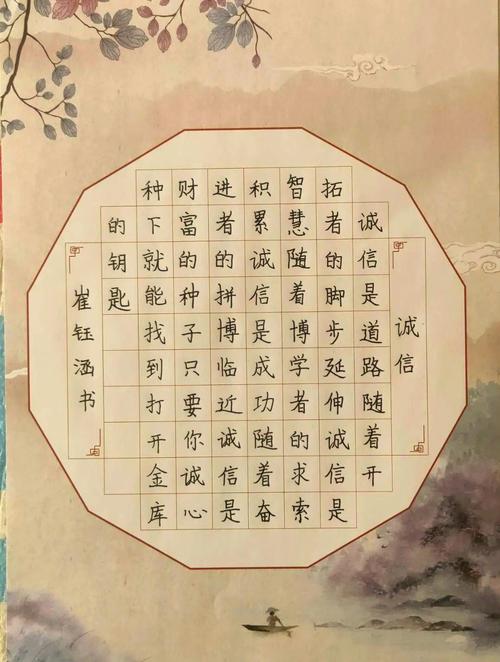 诚信
诚信是道路随着开
拓者的脚步延伸诚信是
智慧随着博学者的求索
积累诚信是成功随着奋
进者的拼博临近诚信是
财富的种子只要你诚心
种下就能找到打开金库
的钥匙
崔钰涵书